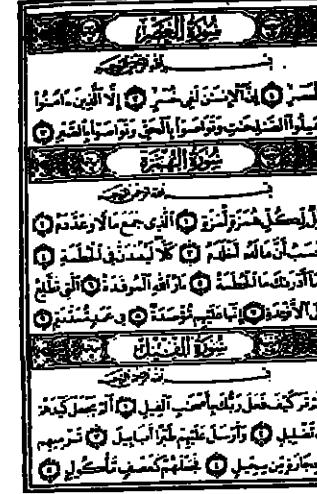 سُورَةُ الْعَصْرِ
بِسْمِ اللَّهِ الرَّحْمَٰنِ الرَّحِيمِ
إِنَّ الْإِنسَٰنَ لَفِي خُسْرٍ ۝٢ إِلَّا الَّذِينَ ءَامَنُوا
الصَّٰلِحَٰتِ وَتَوَاصَوْا بِالْحَقِّ وَتَوَاصَوْا بِالصَّبْرِ ۝٣
سُورَةُ الْهُمَزَةِ
بِسْمِ اللَّهِ الرَّحْمَٰنِ الرَّحِيمِ
لِّكُلِّ هُمَزَةٍ لُّمَزَةٍ ۝١ الَّذِي جَمَعَ مَالًا وَعَدَّدَهُ ۝٢
أَنَّ مَالَهُ أَخْلَدَهُ ۝٣ كَلَّا لَيُنۢبَذَنَّ فِي الْحُطَمَةِ ۝٤
أَدْرَىٰكَ مَا الْحُطَمَةُ ۝٥ نَارُ اللَّهِ الْمُوقَدَةُ ۝٦ الَّتِي تَطَّلِعُ
الْأَفْـِٔدَةِ ۝٧ إِنَّهَا عَلَيْهِم مُّؤْصَدَةٌ ۝٨ فِي عَمَدٍ مُّمَدَّدَةٍ ۝٩
سُورَةُ الْفِيلِ
بِسْمِ اللَّهِ الرَّحْمَٰنِ الرَّحِيمِ
تَرَ كَيْفَ فَعَلَ رَبُّكَ بِأَصْحَٰبِ الْفِيلِ ۝١ أَلَمْ يَجْعَلْ كَيْدَهُمْ
تَضْلِيلٍ ۝٢ وَأَرْسَلَ عَلَيْهِمْ طَيْرًا أَبَابِيلَ ۝٣ تَرْمِيهِم
بِحِجَارَةٍ مِّن سِجِّيلٍ ۝٤ فَجَعَلَهُمْ كَعَصْفٍ مَّأْكُولٍۭ ۝٥